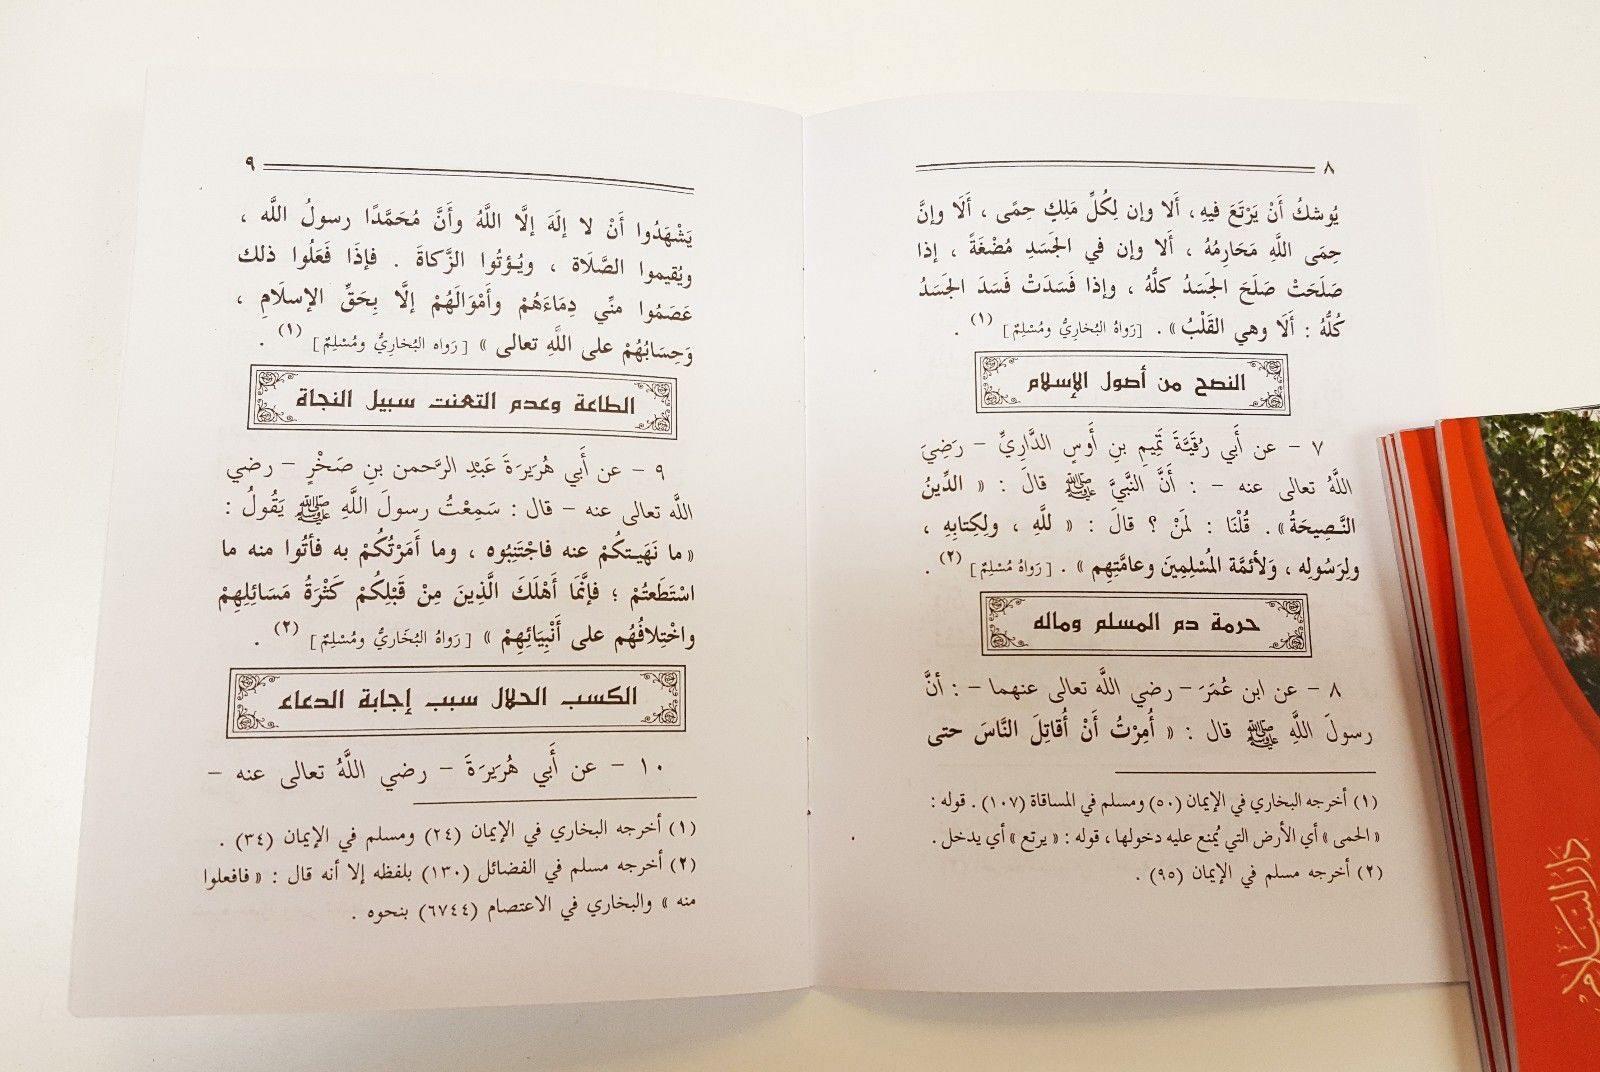 ٨
يُوشكُ أَنْ يَرْتَعَ فيهِ، أَلا وإن لِكُلِّ مَلِكٍ حِمًى ، أَلَا وإنَّ
حِمَى اللَّهِ مَحَارِمُهُ ، أَلا وإن في الجَسَدِ مُضْغَةً ، إذا
صَلَحَتْ صَلَحَ الجَسَدُ كلُّهُ ، وإذا فَسَدَتْ فَسَدَ الجَسَدُ
كُلُّهُ : أَلَا وهي القَلْبُ » . [رَواهُ البُخاريُّ ومُسْلِمٌ] (١) .
النصح من أصول الإسلام
٧ – عن أَبي رُقَيَّةَ تَمِيمِ بنِ أَوسٍ الدَّاريِّ – رَضِيَ
اللَّهُ تعالى عنه – : أَنَّ النَّبيَّ ﷺ قالَ : « الدِّينُ
النَّـصِيحَةُ ». قُلْنَا : لمَنْ ؟ قالَ : « للَّهِ ، ولِكِتابِهِ ،
ولِرَسُولِه ، وَلأئمَّة المُسْلِمِينَ وعامَّتِهِم » . [رَواهُ مُسْلِمٌ] (٢) .
حرمة دم المسلم وماله
٨ – عن ابن عُمَرَ – رضي اللَّه تعالى عنهما – : أنَّ
رسولَ اللَّهِ ﷺ قال : « أُمِرْتُ أَنْ أُقاتِلَ النَّاسَ حتى
(١) أخرجه البخاري في الإيمان (٥٠) ومسلم في المساقاة (١٠٧) . قوله :
« الحمى » أي الأرض التي يُمنع عليه دخولها ، قوله : « يرتع » أي يدخل .
(٢) أخرجه مسلم في الإيمان (٩٥) .
٩
يَشْهَدُوا أَنْ لا إلَهَ إلَّا اللَّهُ وأَنَّ مُحَمَّدًا رسولُ اللَّه ،
ويُقيموا الصَّلَاة ، ويُـؤتُوا الزَّكاةَ . فإذَا فَعَلُوا ذلك
عَصَمُوا منِّي دِمَاءَهُمْ وأَمْوَالَهُمْ إلَّا بِحَقِّ الإسلَامِ ،
وَحِسَابُهُمْ على اللَّهِ تعالى » [رَواه البُخاريُّ ومُسْلِمٌ] (١) .
الطاعة وعدم التعنت سبيل النجاة
٩ – عن أَبي هُرَيرَةَ عَبْدِ الرَّحمن بنِ صَخْرٍ – رضي
اللَّه تعالى عنه – قال : سَمِعْتُ رسولَ اللَّهِ ﷺ يَقُولُ :
« ما نَهَيـتكُمْ عنه فاجْتَنِبُوه ، وما أَمَرْتُكُمْ به فأتُوا منه ما
اسْتَطَعتُمْ ؛ فإنَّمَا أَهْلَكَ الَّذِينَ مِنْ قَبْلِكُمْ كَثْرَةُ مَسَائِلِهِمْ
واخْتِلافُهُم على أَنْبِيَائِهِمْ » [رَواهُ البُخَاريُّ ومُسْلِمٌ] (٢) .
الكسب الحلال سبب إجابة الدعاء
١٠ – عن أَبي هُرَيرَةَ – رضي اللَّهُ تعالى عنه –
(١) أخرجه البخاري في الإيمان (٢٤) ومسلم في الإيمان (٣٤) .
(٢) أخرجه مسلم في الفضائل (١٣٠) بلفظه إلا أنه قال : « فافعلوا
منه » والبخاري في الاعتصام (٦٧٤٤) بنحوه .
دار السلام